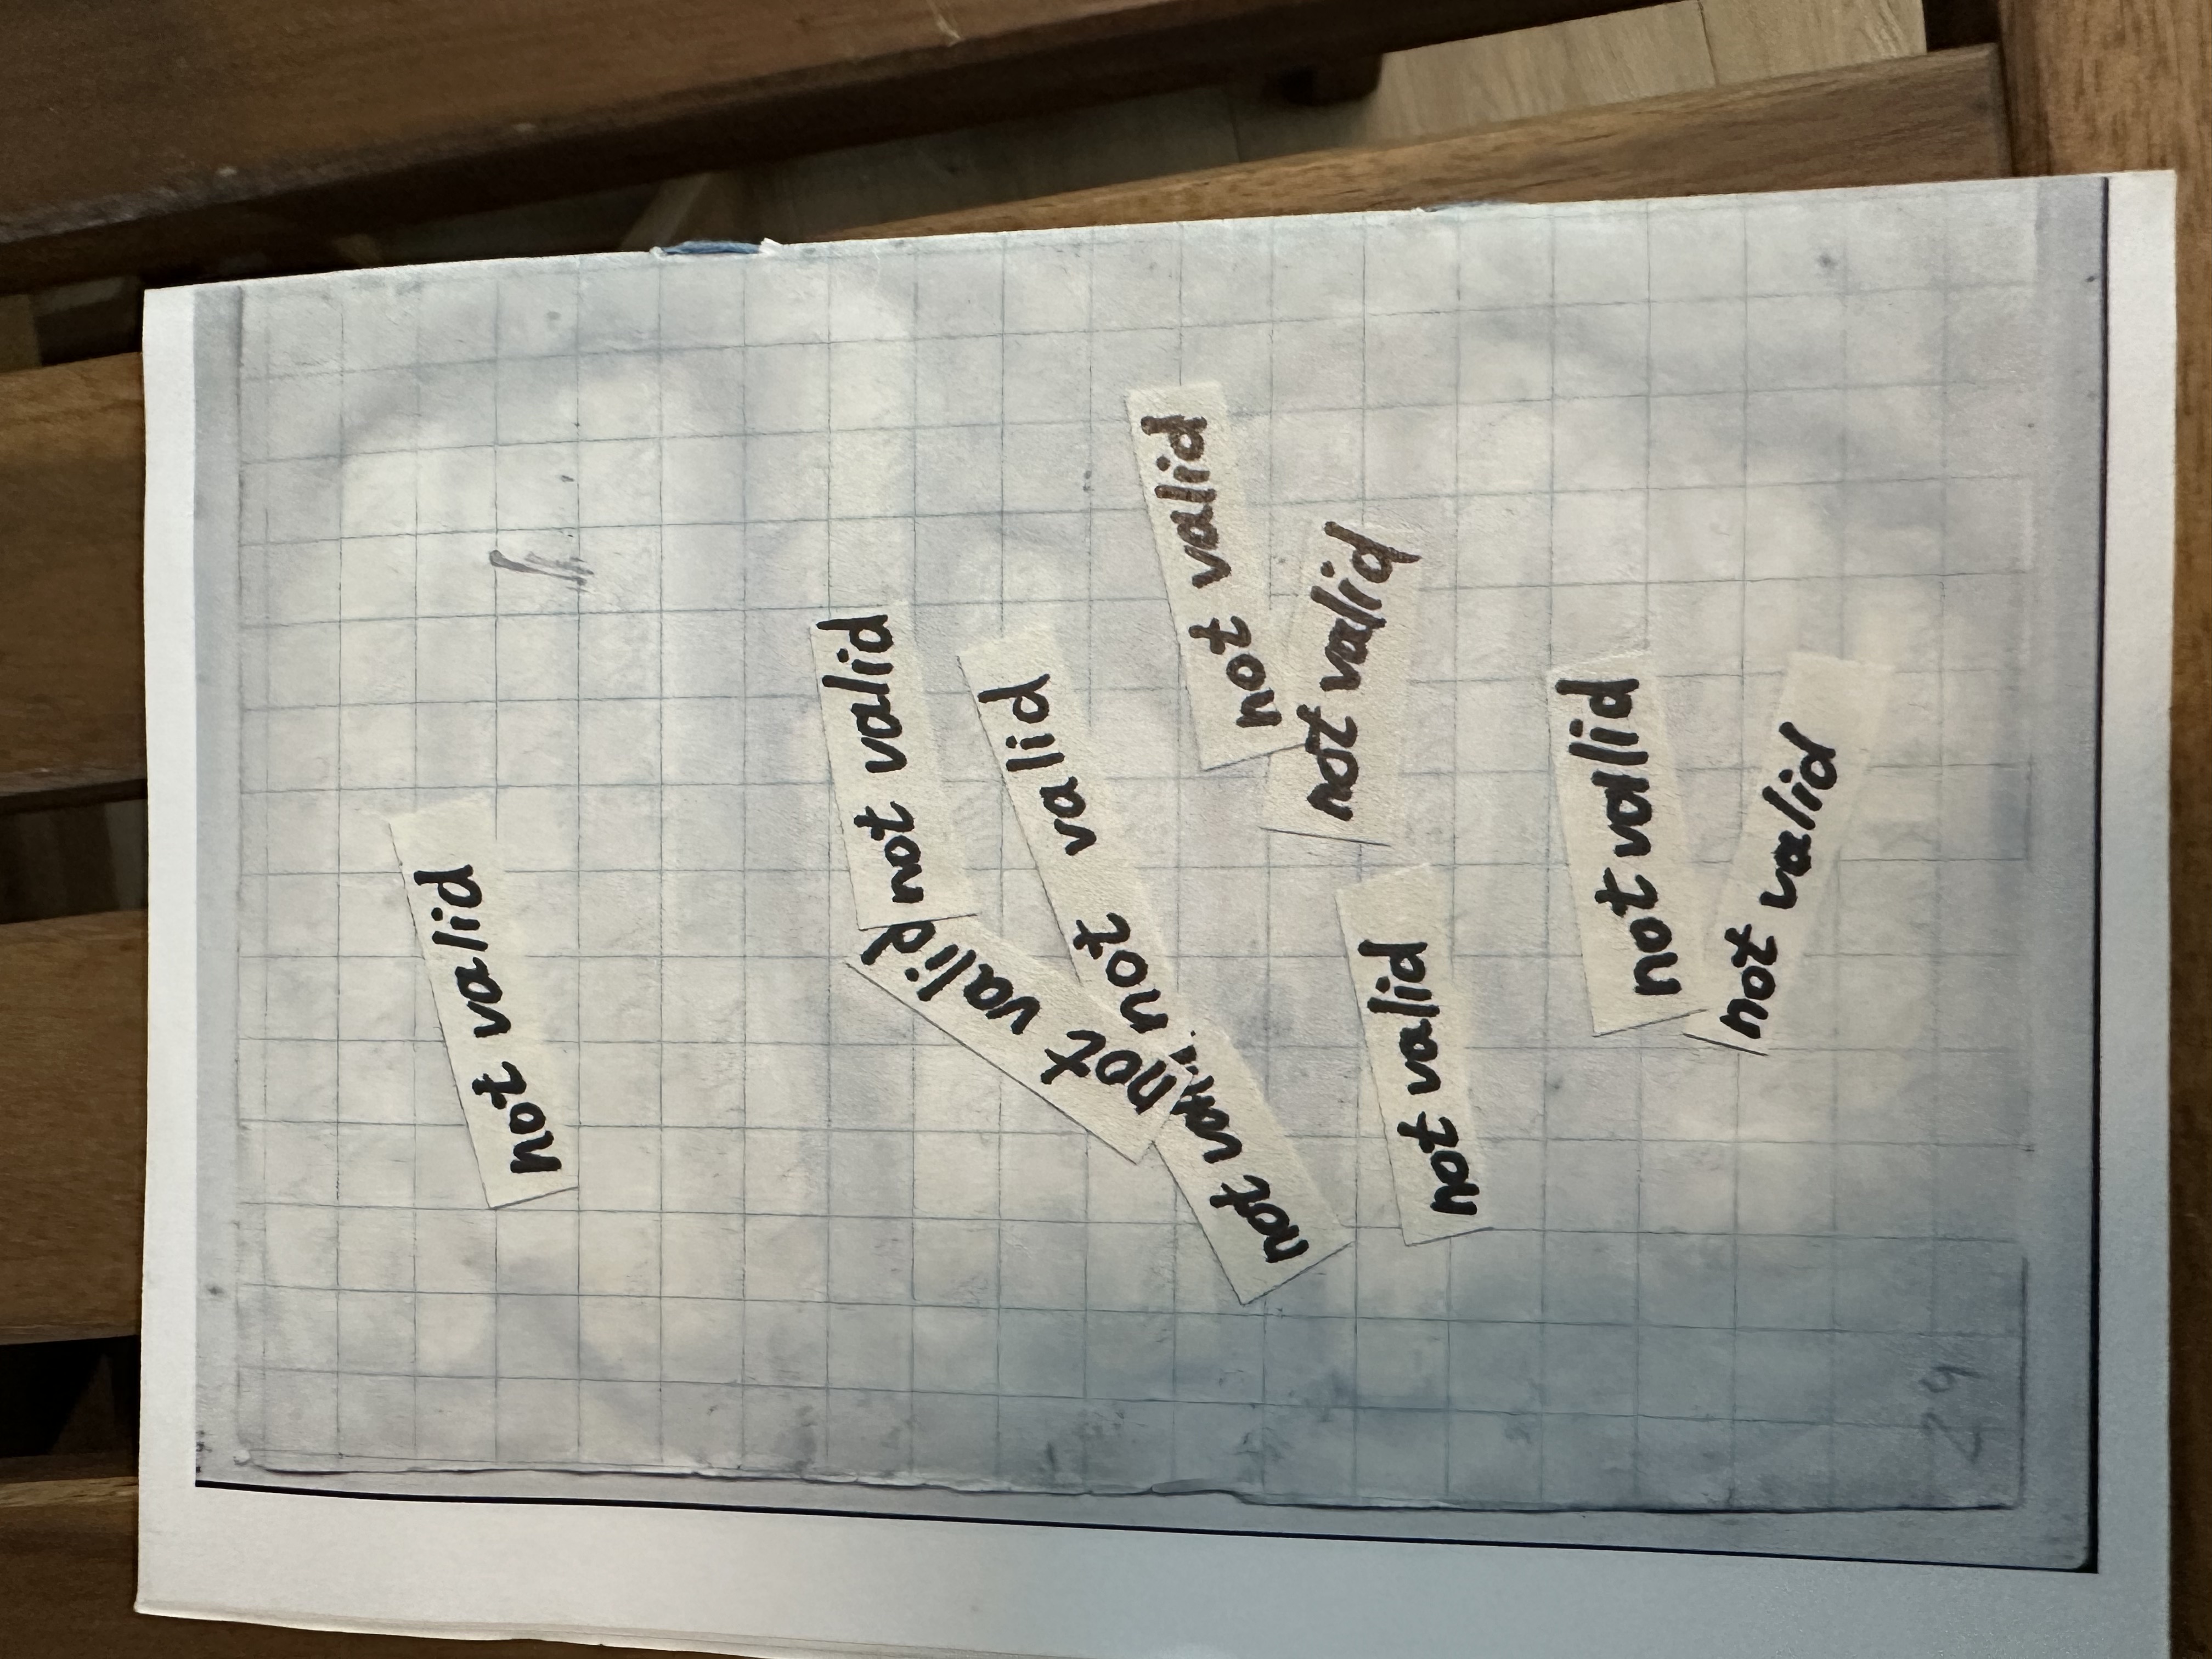 not valid
not valid
not valid
not valid
not
not valid
not valid
not valid
not valid
not valid
24